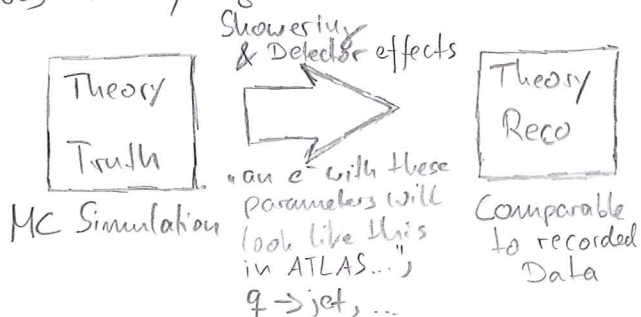 Showering
& Detector effects
Theory
Truth
MC Simulation
"an e⁻ with these
parameters will
look like this
in ATLAS...",
q → jet, ...
Theory
Reco
Comparable
to recorded
Data